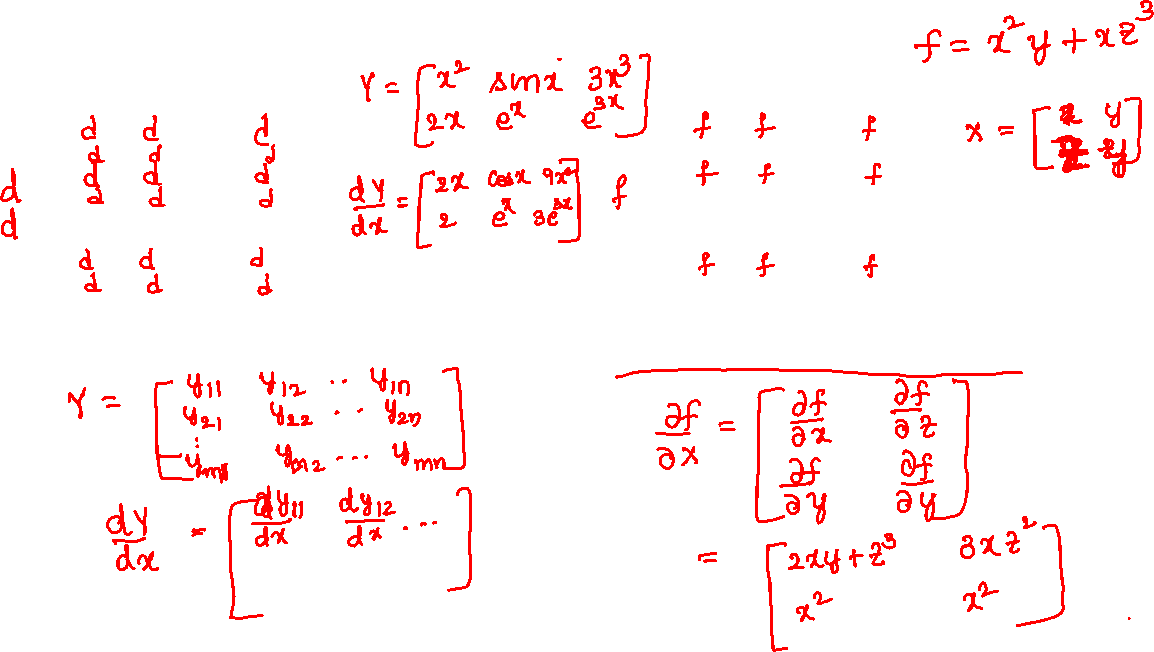 f = x² y + x z³
Y = [ x² sin x 3x³
2x eˣ e³ˣ ]
d d d f f f
d d d
d d d f f f
d d d d
d
dY/dx = [ 2x cos x 9x²
2 eˣ 3e³ˣ ] f
d d d f f f
d d d
X = [ y
y ]
Y = [ y₁₁ y₁₂ .. y₁n
y₂₁ y₂₂ .. y₂n
⋮
ym₁ ym₂ ... ymn ]
dY/dx = [ dy₁₁/dx dy₁₂/dx ... ]
∂f/∂X = [ ∂f/∂x ∂f/∂z
∂f/∂y ∂f/∂y ]
= [ 2xy + z³ 3xz²
x² x² ]